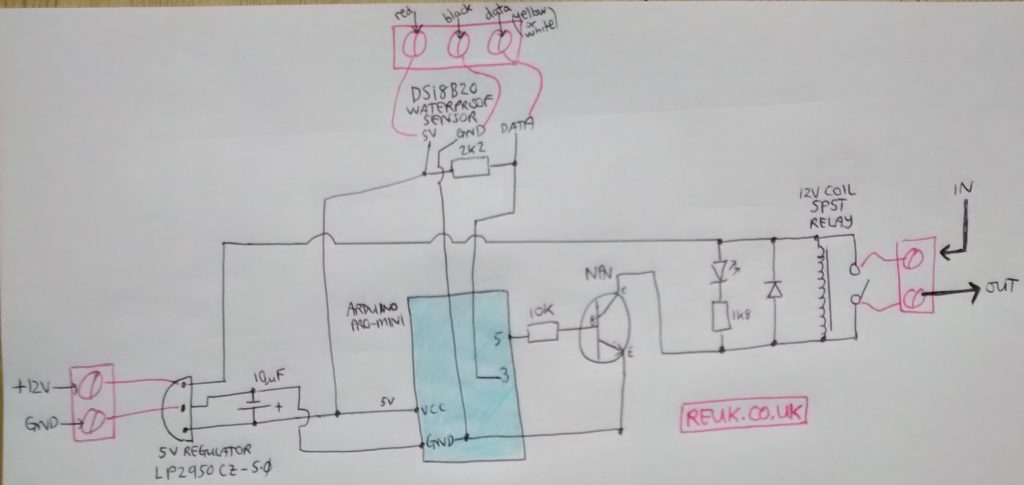 red
black
data
(yellow
or
white)
DS18B20
WATERPROOF
SENSOR
5V
GND
DATA
2K2
12V COIL
SPST
RELAY
IN
OUT
NPN
C
B
E
10K
1K8
ARDUINO
PRO-MINI
5
3
VCC
GND
5V
10uF
+
+12V
GND
5V REGULATOR
LP2950CZ-5.0
REUK.CO.UK